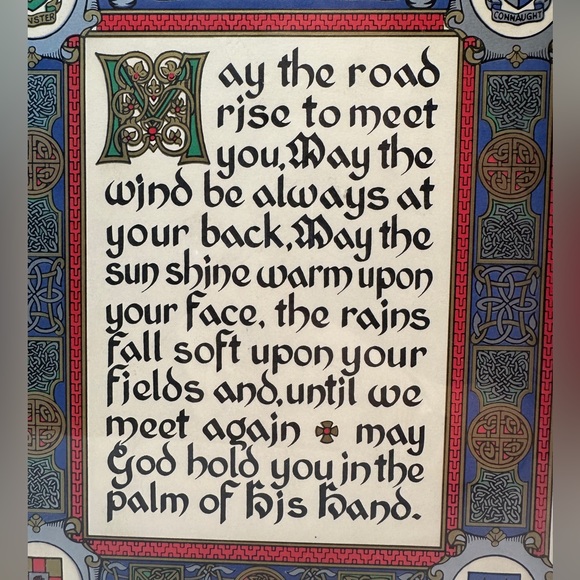 NSTER
CONNAUGHT
May the road
rise to meet
you, May the
wind be always at
your back, May the
sun shine warm upon
your face, the rains
fall soft upon your
fields and, until we
meet again may
God hold you in the
palm of his hand.